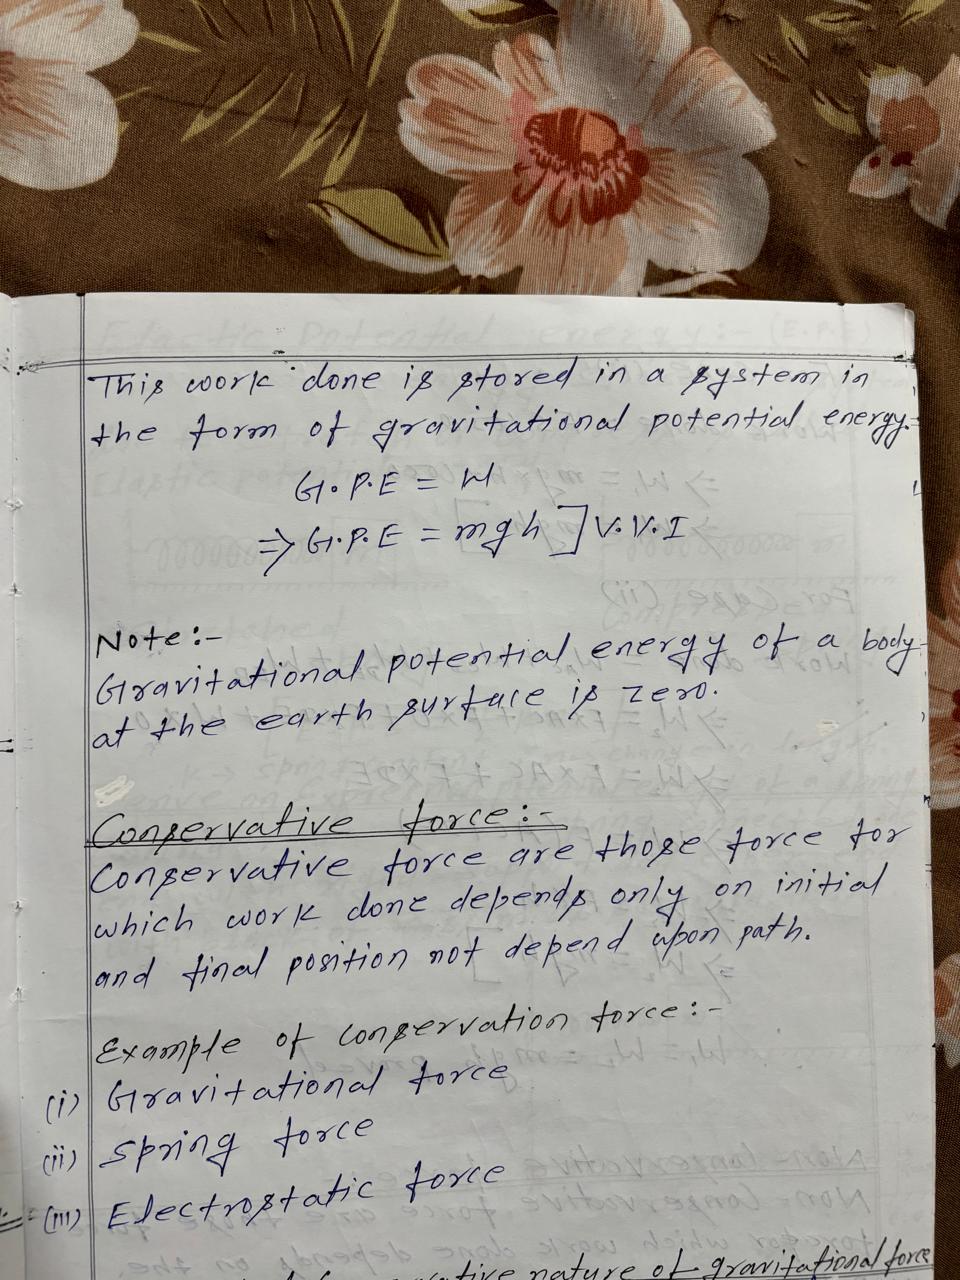 This work done is stored in a system in
the form of gravitational potential energy.
G.P.E = W
⇒ G.P.E = mgh ] V.V.I
Note:-
Gravitational potential energy of a body
at the earth surface is zero.
Conservative force:-
Conservative force are those force for
which work done depends only on initial
and final position not depend upon path.
Example of conservation force:-
(i) Gravitational force
(ii) Spring force
(iii) Electrostatic force
nature of gravitational force